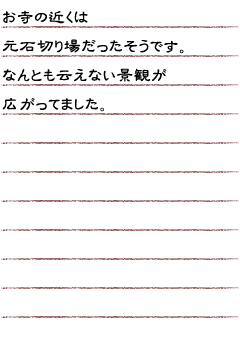 お寺の近くは
元石切り場だったそうです。
なんとも云えない景観が
広がってました。